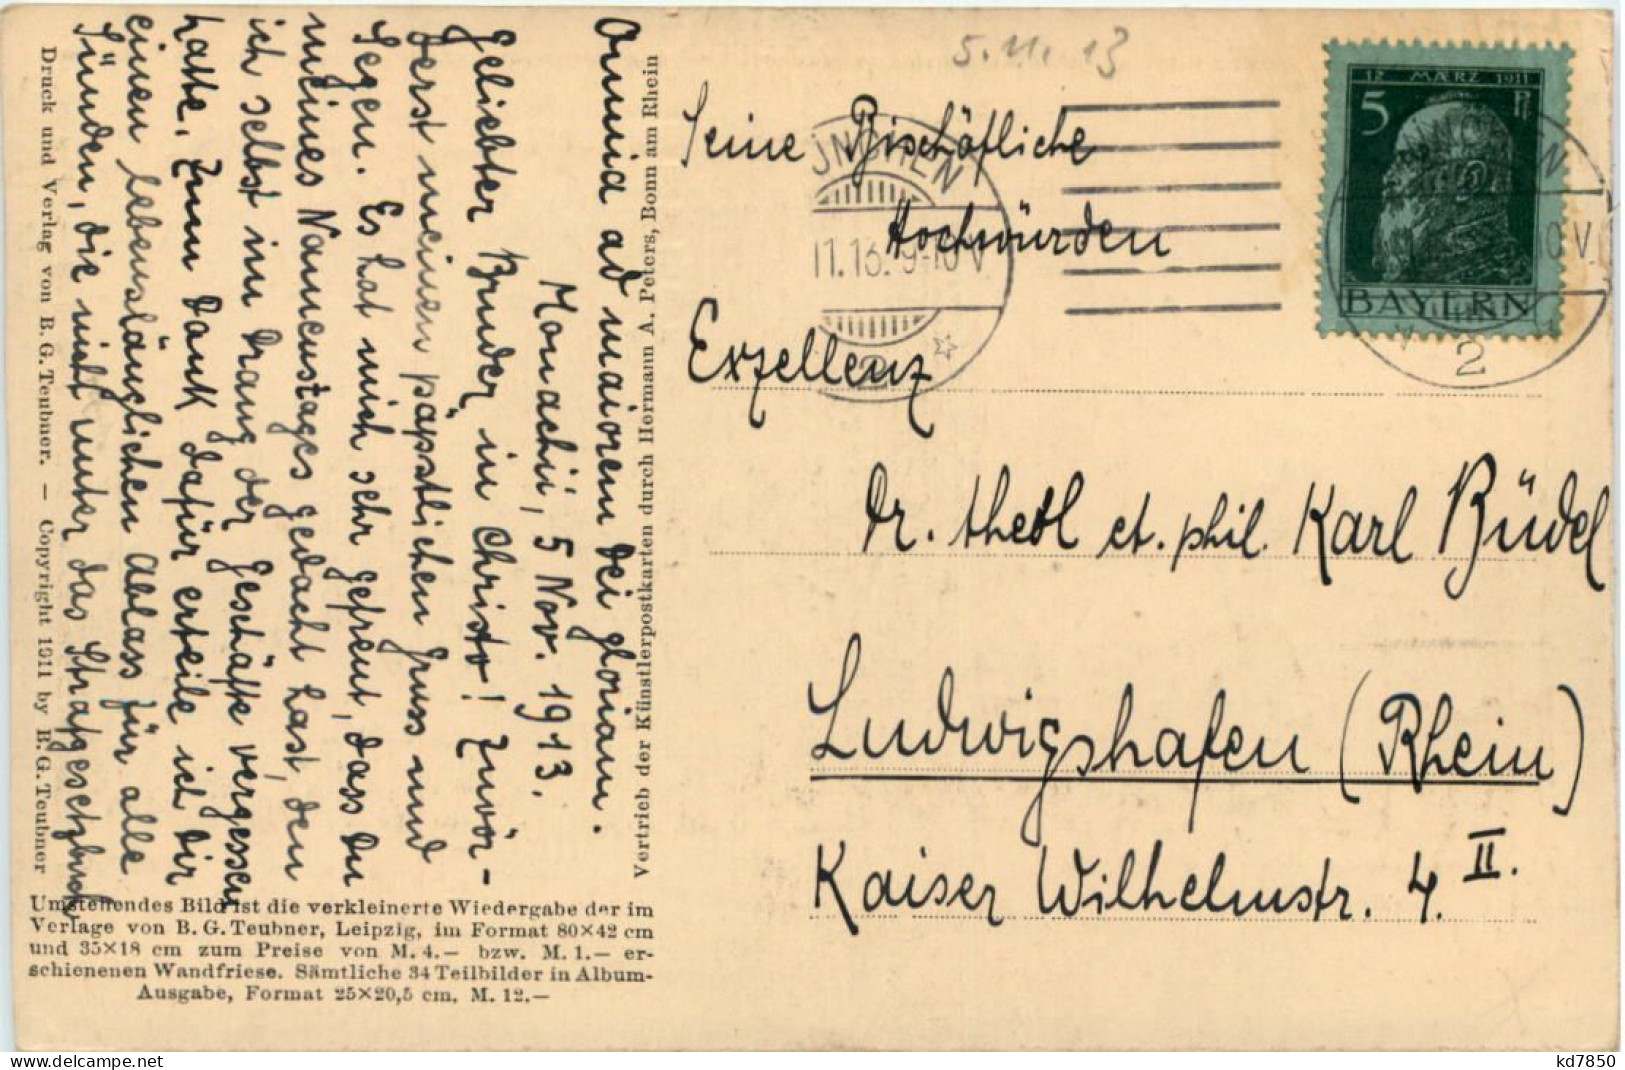 Omnia ad maiorem Dei gloriam.
Monachii, 5 Nov. 1913.
Geliebter Bruder in Christo! Zuvör-
derst meinen päpstlichen Gruss und
Segen. Es hat mich sehr gefreut, dass Du
meines Namenstages gedacht hast, den
ich selbst im Drang der Geschäfte vergessen
hatte. Zum Dank dafür erteile ich Dir
einen lebenslänglichen Ablass für alle
Sünden, die nicht unter das Strafgesetzbuch
Druck und Verlag von B. G. Teubner. — Copyright 1911 by B. G. Teubner
Vertrieb der Künstlerpostkarten durch Hermann A. Peters, Bonn am Rhein
Umstehendes Bild ist die verkleinerte Wiedergabe der im
Verlage von B. G. Teubner, Leipzig, im Format 80×42 cm
und 35×18 cm zum Preise von M. 4.— bzw. M. 1.— er-
schienenen Wandfriese. Sämtliche 34 Teilbilder in Album-
Ausgabe, Format 25×20,5 cm, M. 12.—
5. 11. 13
12 MÆRZ 1911
5 Pf
BAYERN
ÜNCHEN
11.13. 9-10 V.
2
0 V.
2
Seine Bischöfliche
Hochwürden
Exzellenz
Dr. theol et. phil. Karl Büdel
Ludwigshafen (Rhein)
Kaiser Wilhelmstr. 4. II.
kd7850